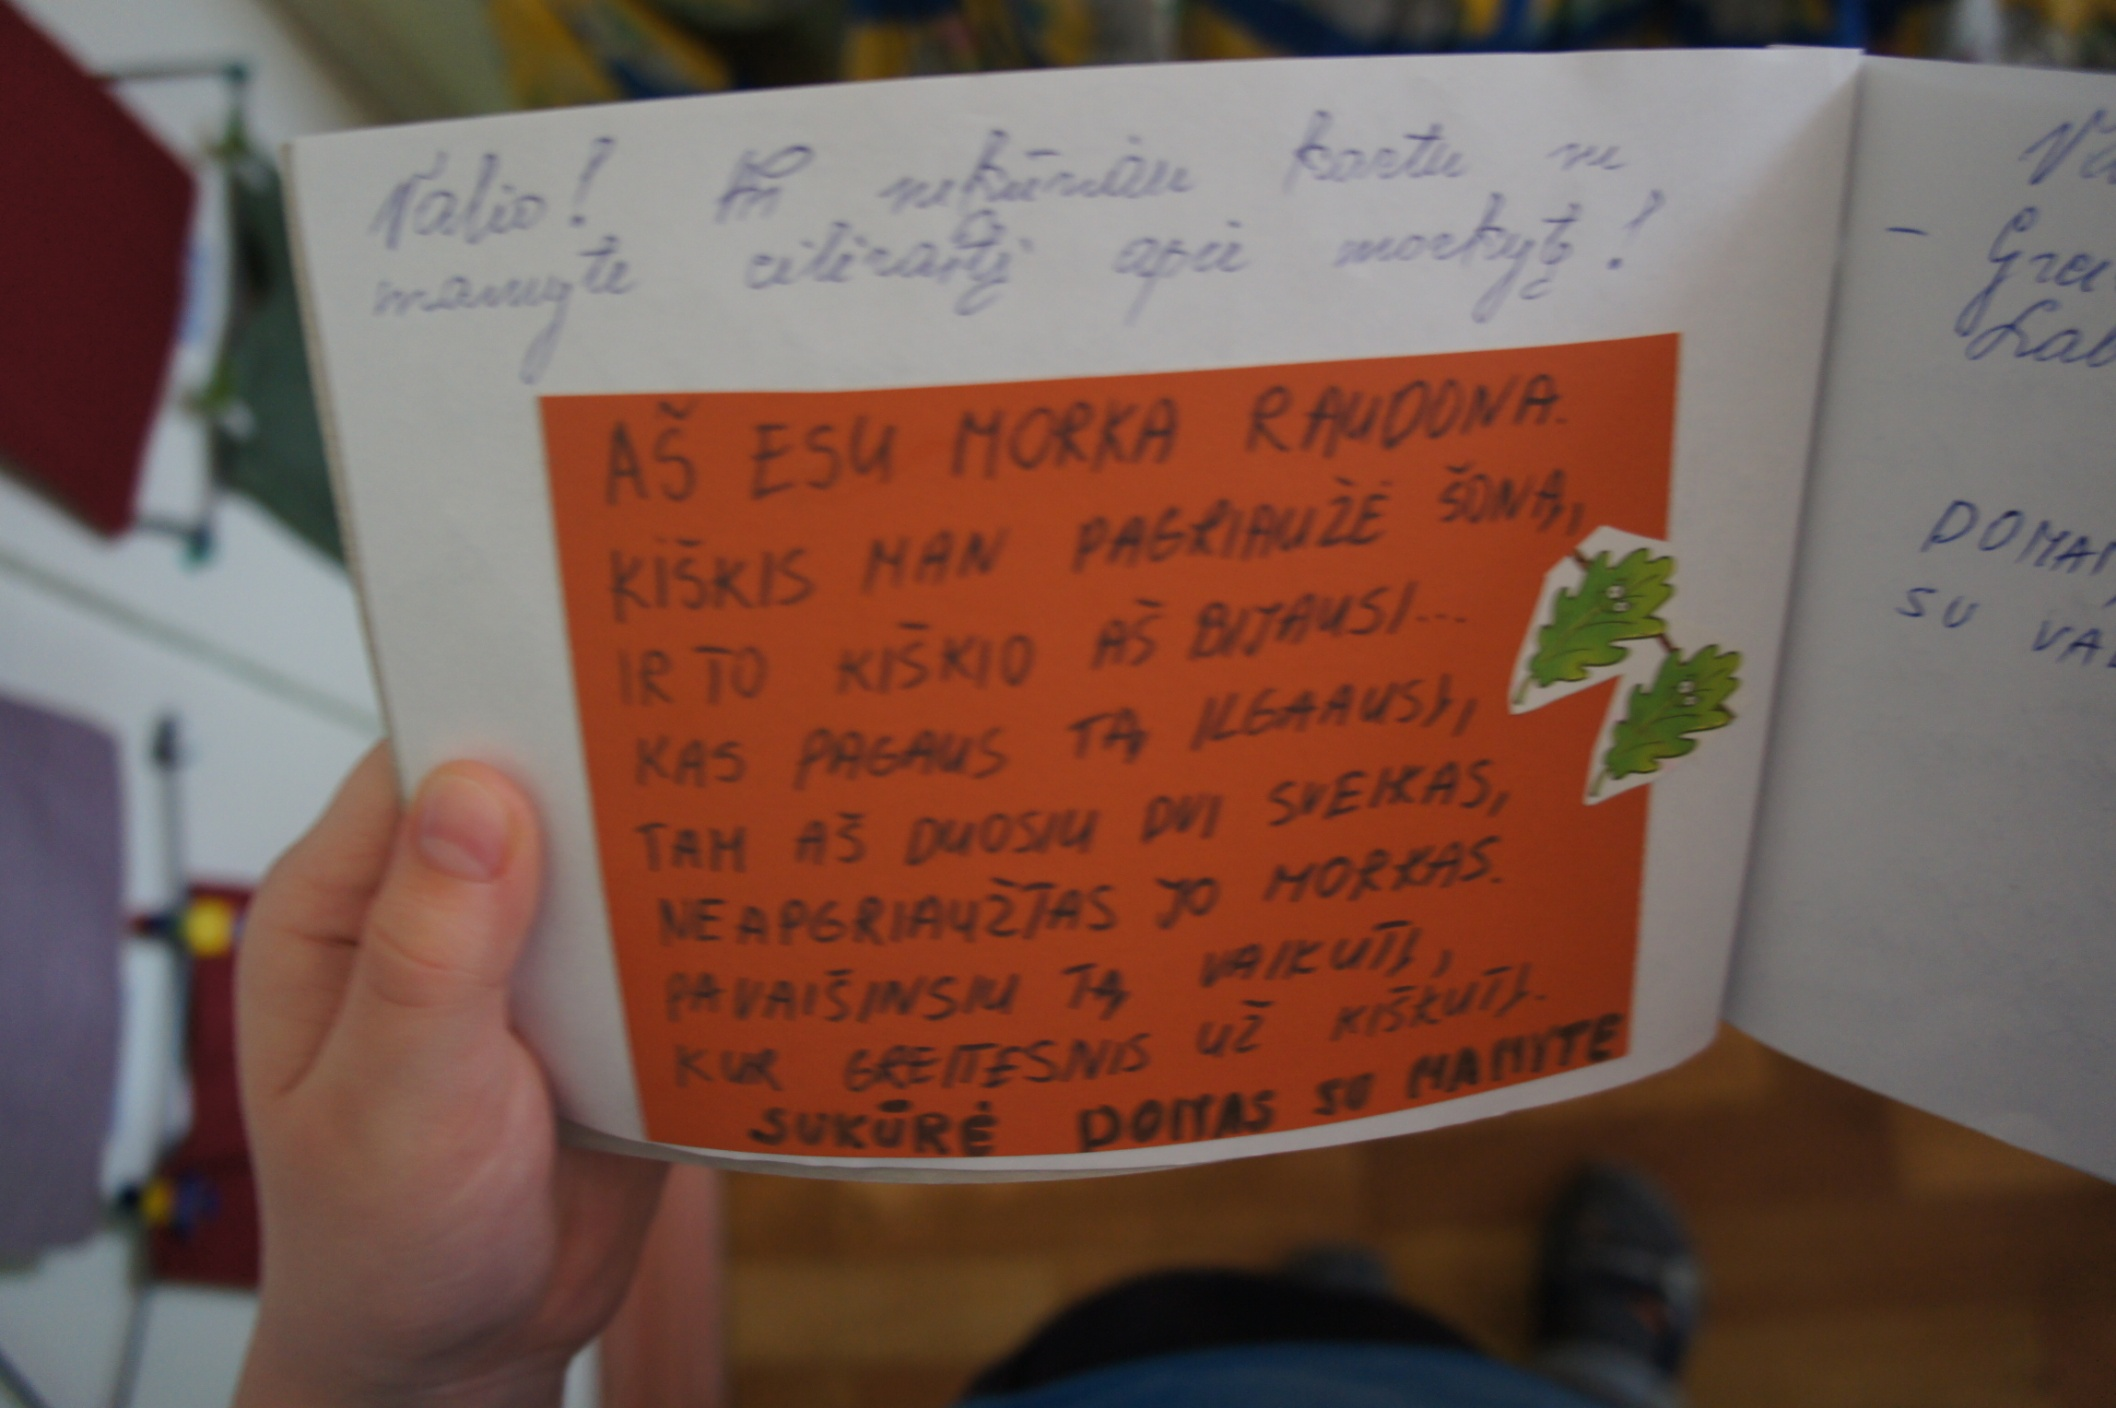 Valio! sukūriau kartu su
mamyte eilėraštį apie morkytę!
AŠ ESU MORKA RAUDONA.
KIŠKIS MAN PAGRIAUŽĖ ŠONĄ,
IR TO KIŠKIO AŠ BIJAUSI...
KAS PAGAUS TĄ ILGAAUSĮ,
TAM AŠ DUOSIU DVI SVEIKAS,
NEAPGRIAUŽTAS JO MORKAS.
PAVAIŠINSIU TĄ VAIKUTĮ,
KUR GREITESNIS UŽ KIŠKUTĮ.
SUKŪRĖ DOMAS SU MAMYTE
SU